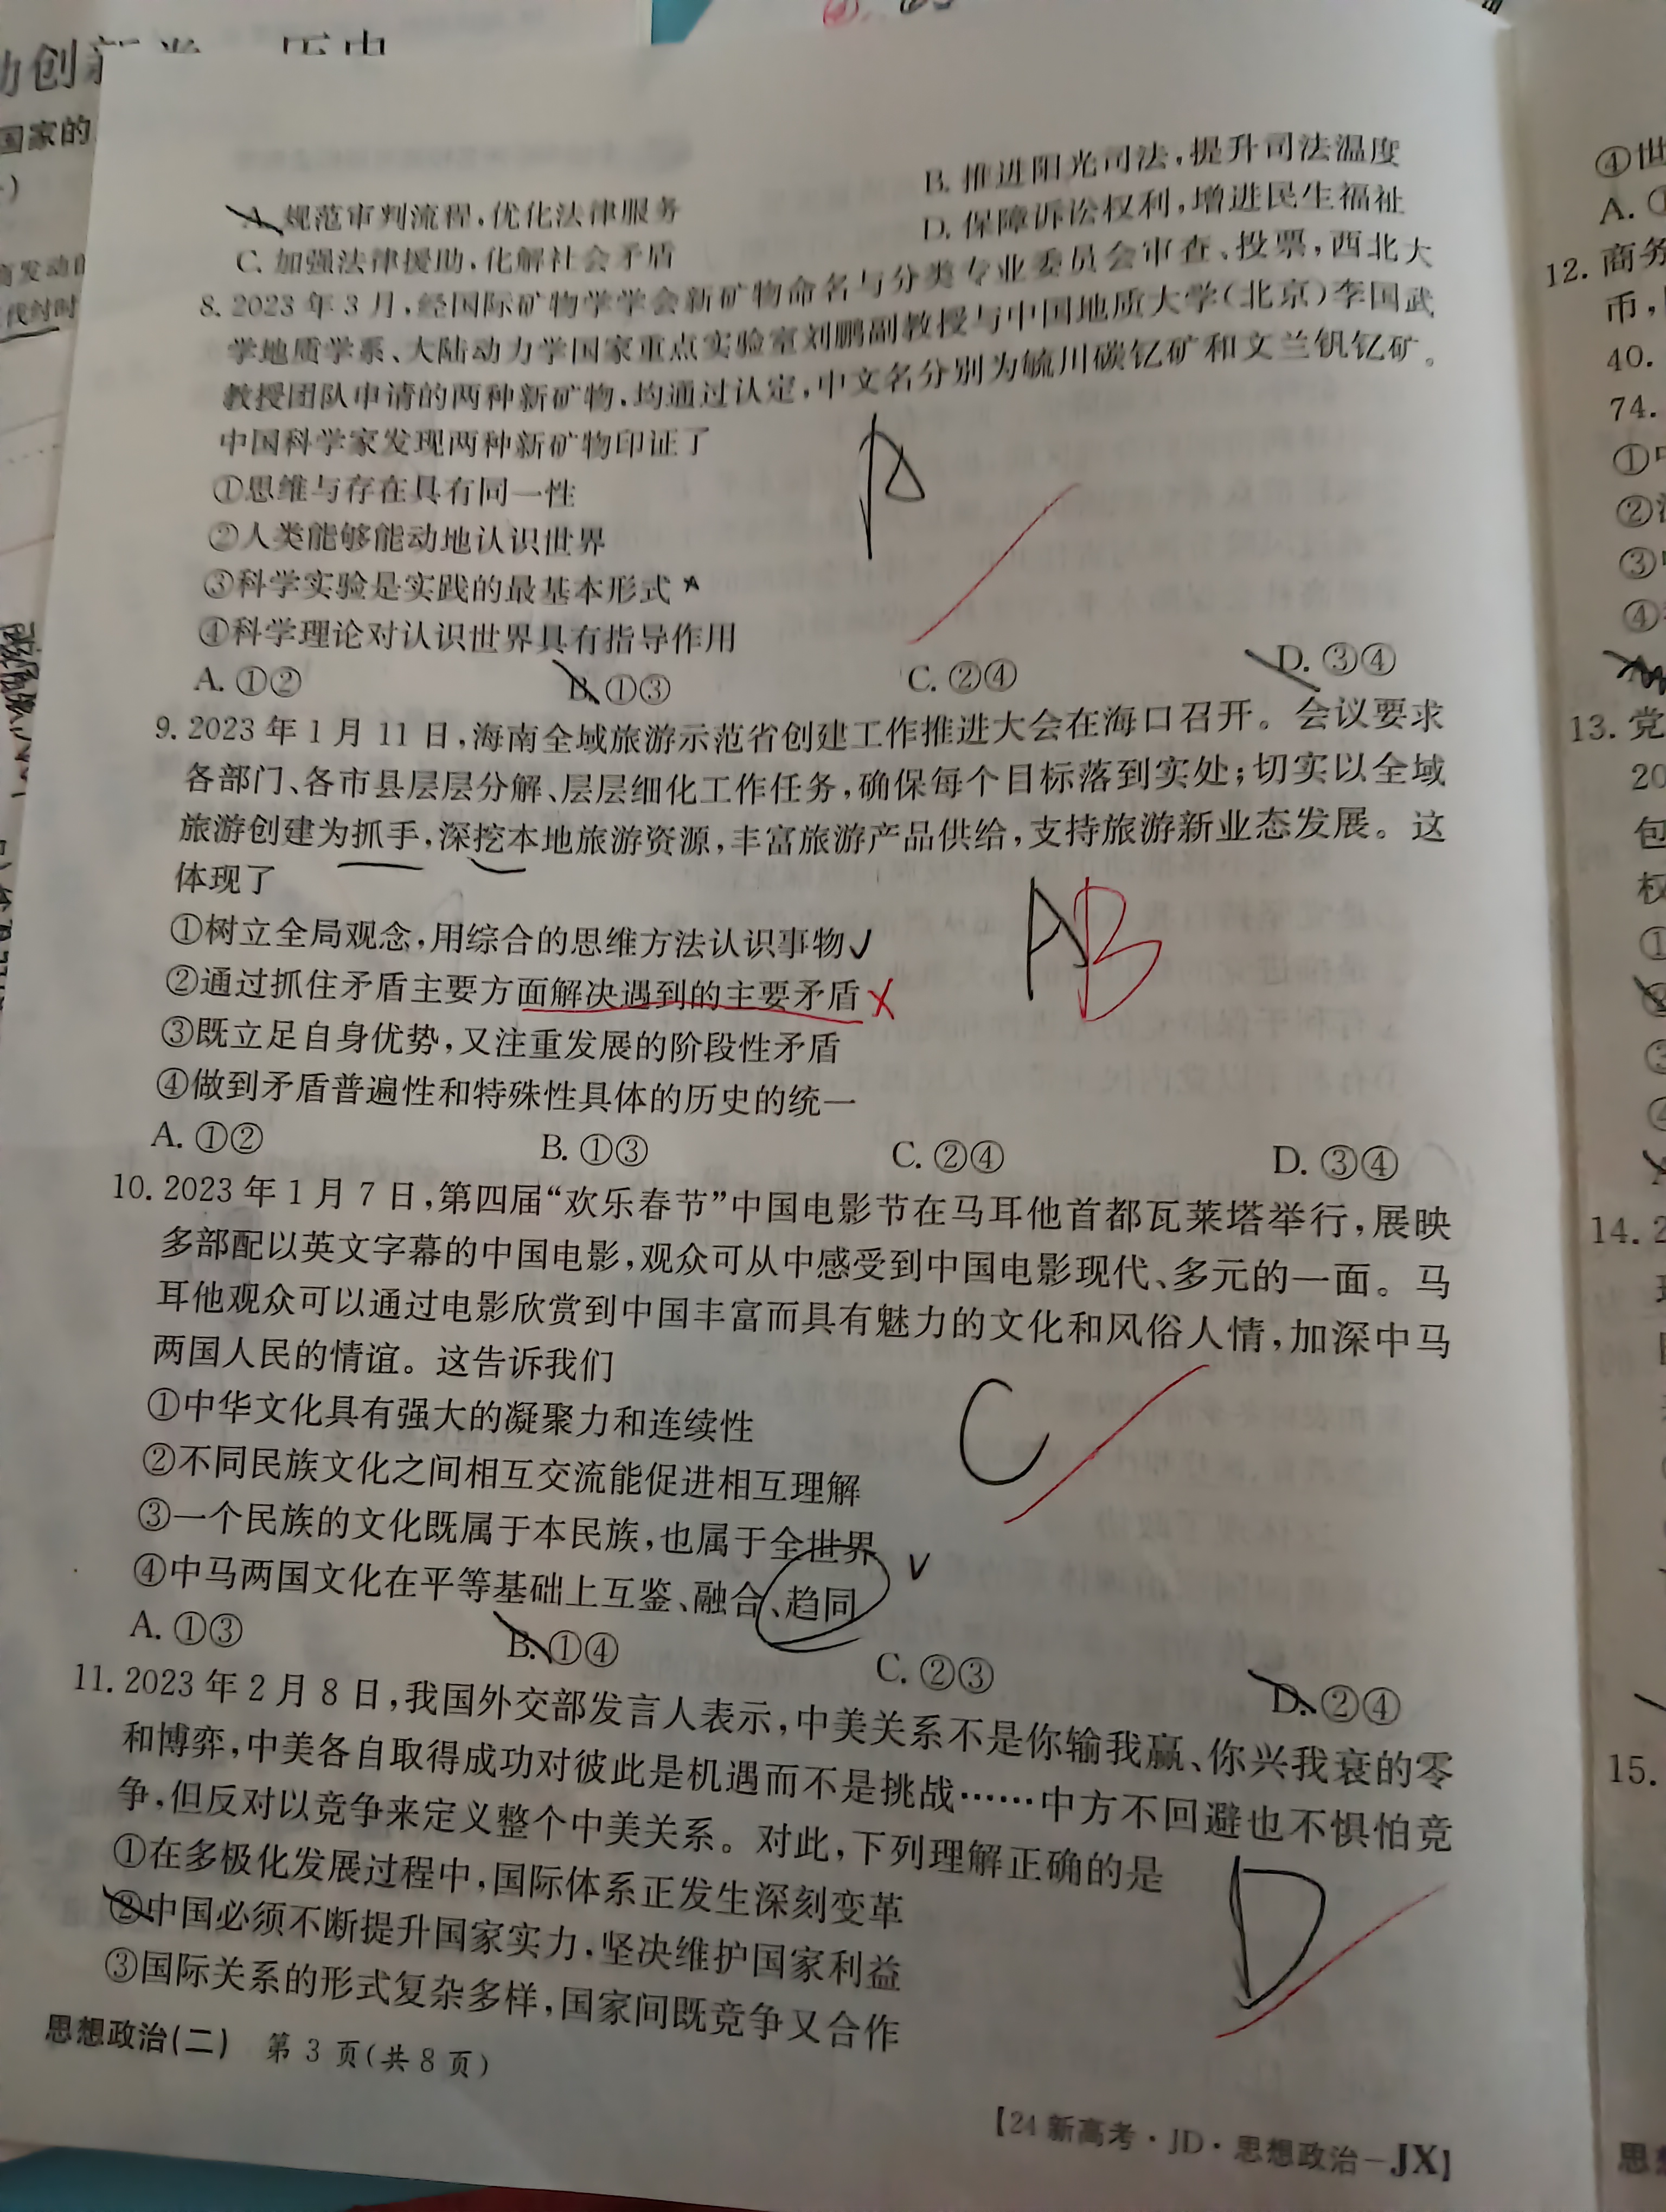 动创新卷 历史
国家的
A. 规范审判流程,优化法律服务
B. 推进阳光司法,提升司法温度
C. 加强法律援助,化解社会矛盾
D. 保障诉讼权利,增进民生福祉
8. 2023年3月,经国际矿物学学会新矿物命名与分类专业委员会审查、投票,西北大
学地质学系、大陆动力学国家重点实验室刘鹏副教授与中国地质大学(北京)李国武
教授团队申请的两种新矿物,均通过认定,中文名分别为毓川碳钇矿和文兰钒钇矿。
中国科学家发现两种新矿物印证了
①思维与存在具有同一性
②人类能够能动地认识世界
③科学实验是实践的最基本形式
④科学理论对认识世界具有指导作用
A. ①② B. ①③ C. ②④ D. ③④
A
9. 2023年1月11日,海南全域旅游示范省创建工作推进大会在海口召开。会议要求
各部门、各市县层层分解、层层细化工作任务,确保每个目标落到实处;切实以全域
旅游创建为抓手,深挖本地旅游资源,丰富旅游产品供给,支持旅游新业态发展。这
体现了
①树立全局观念,用综合的思维方法认识事物
②通过抓住矛盾主要方面解决遇到的主要矛盾
③既立足自身优势,又注重发展的阶段性矛盾
④做到矛盾普遍性和特殊性具体的历史的统一
A. ①② B. ①③ C. ②④ D. ③④
A B
10. 2023年1月7日,第四届“欢乐春节”中国电影节在马耳他首都瓦莱塔举行,展映
多部配以英文字幕的中国电影,观众可从中感受到中国电影现代、多元的一面。马
耳他观众可以通过电影欣赏到中国丰富而具有魅力的文化和风俗人情,加深中马
两国人民的情谊。这告诉我们
①中华文化具有强大的凝聚力和连续性
②不同民族文化之间相互交流能促进相互理解
③一个民族的文化既属于本民族,也属于全世界
④中马两国文化在平等基础上互鉴、融合、趋同
A. ①③ B. ①④ C. ②③ D. ②④
C
11. 2023年2月8日,我国外交部发言人表示,中美关系不是你输我赢、你兴我衰的零
和博弈,中美各自取得成功对彼此是机遇而不是挑战……中方不回避也不惧怕竞
争,但反对以竞争来定义整个中美关系。对此,下列理解正确的是
①在多极化发展过程中,国际体系正发生深刻变革
②中国必须不断提升国家实力,坚决维护国家利益
③国际关系的形式复杂多样,国家间既竞争又合作
D
思想政治(二) 第3页(共8页)
【24新高考·JD·思想政治-JX】
④世
A. ①
12. 商务
币,
40.
74.
①中
②
③
④
13. 党
20
包
权
①
③
14. 2
15.
思想